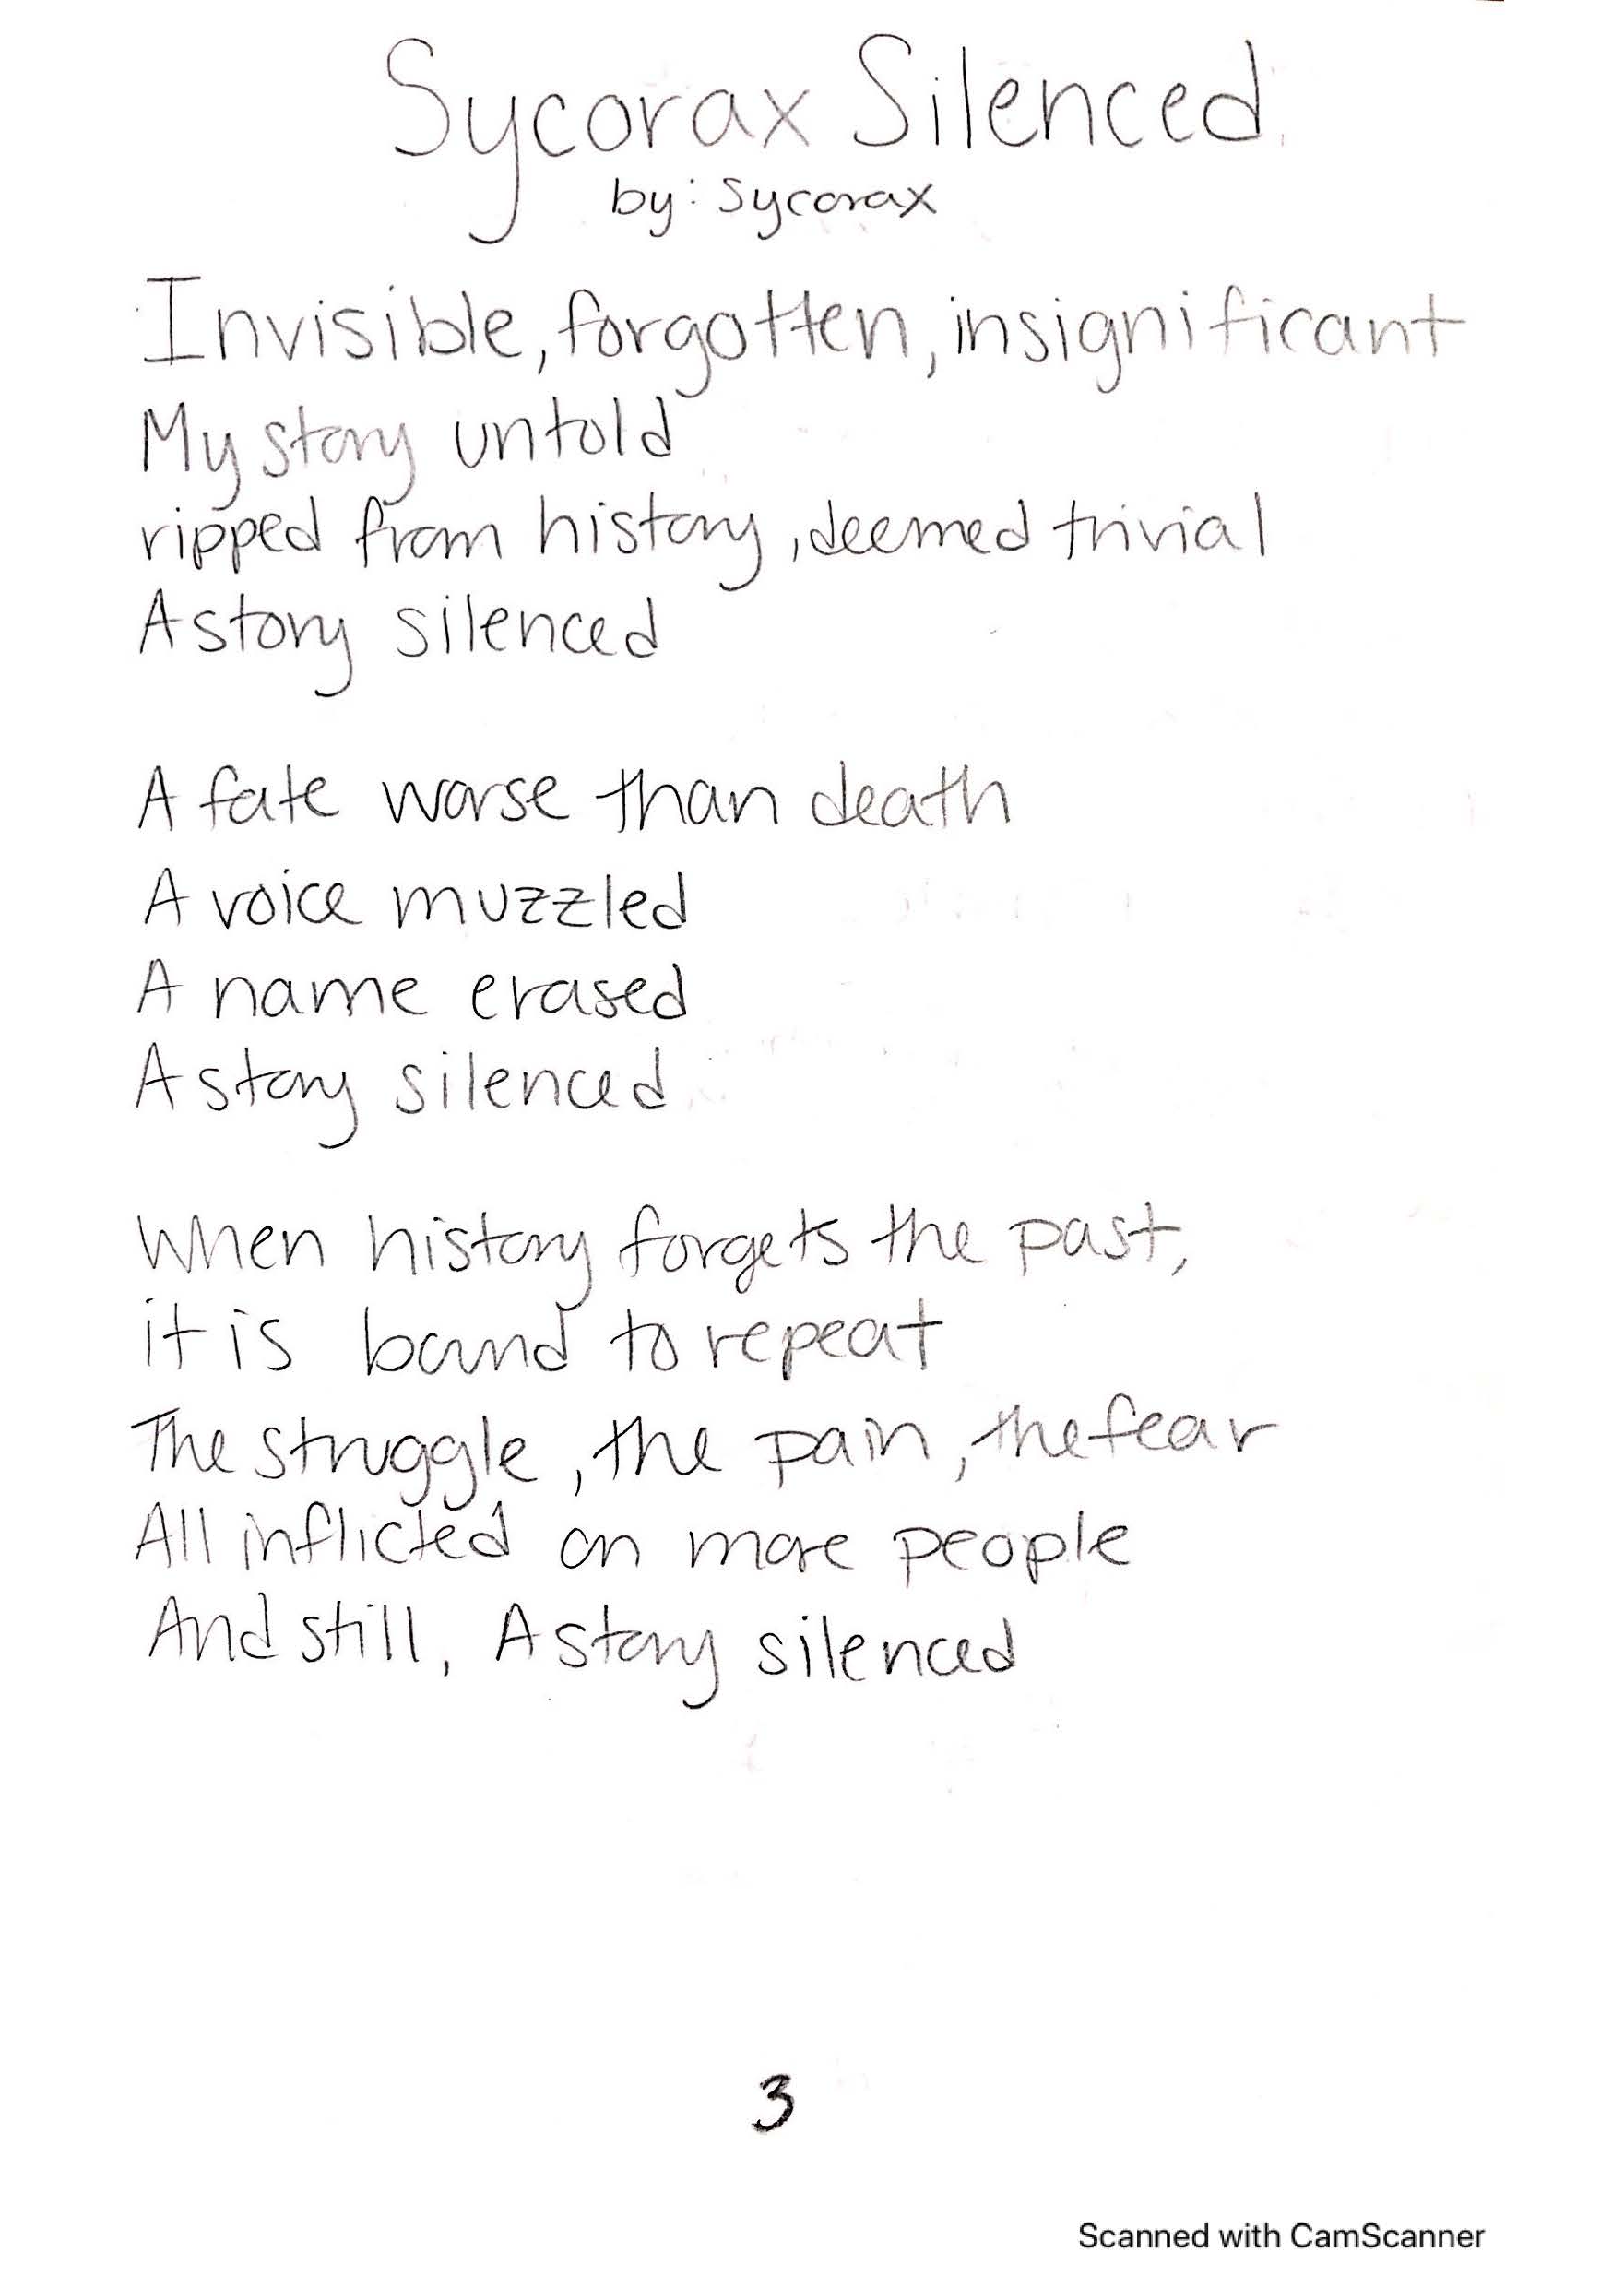 Sycorax Silenced
by: Sycorax
Invisible, forgotten, insignificant
My story untold
ripped from history, deemed trivial
A story silenced
A fate worse than death
A voice muzzled
A name erased
A story silenced
When history forgets the past,
it is bound to repeat
The struggle, the pain, the fear
All inflicted on more people
And still, A story silenced
3
Scanned with CamScanner